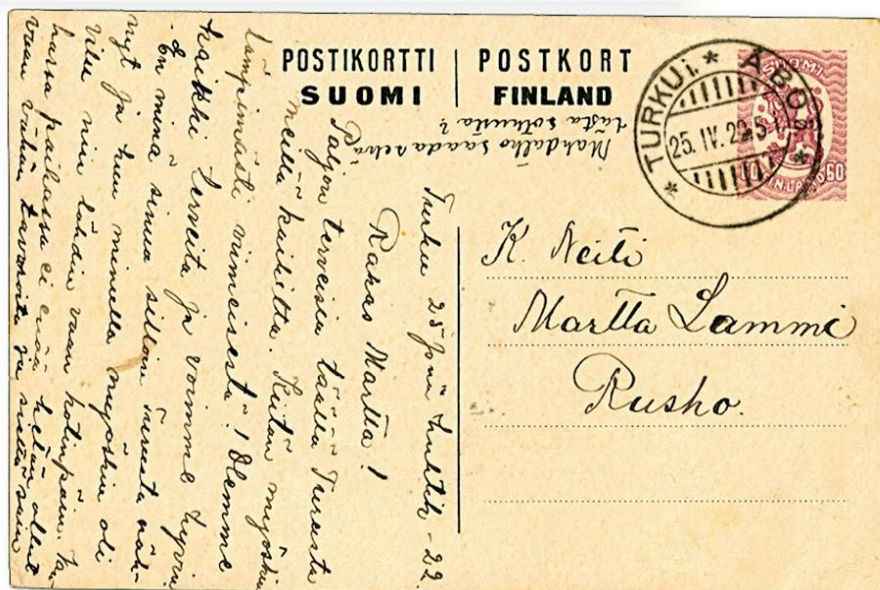 POSTIKORTTI | POSTKORT
SUOMI | FINLAND
TURKU i. * ÅBO
25. IV. 22
SUOMI
FINLAND
60
K. Neiti
Martta Lammi
Rusko.
Turku 25 p:nä huhtik - 22
Rakas Martta!
Paljon terveisiä täällä Turusta
meiltä kaikilta. Kiitän myöskin
lämpimästi viimeisestä! Olemme
kaikki terveitä ja voimme hyvin
En minä sinua silloin Turusta näh-
nyt ja kun minulla myöskin oli
vilu niin lähdin vaan kotiinpäin.
paikassa ei enää ollut
vaan vähän tavaroita ja
Mahdatko saada selvä
tästä sotkusta?